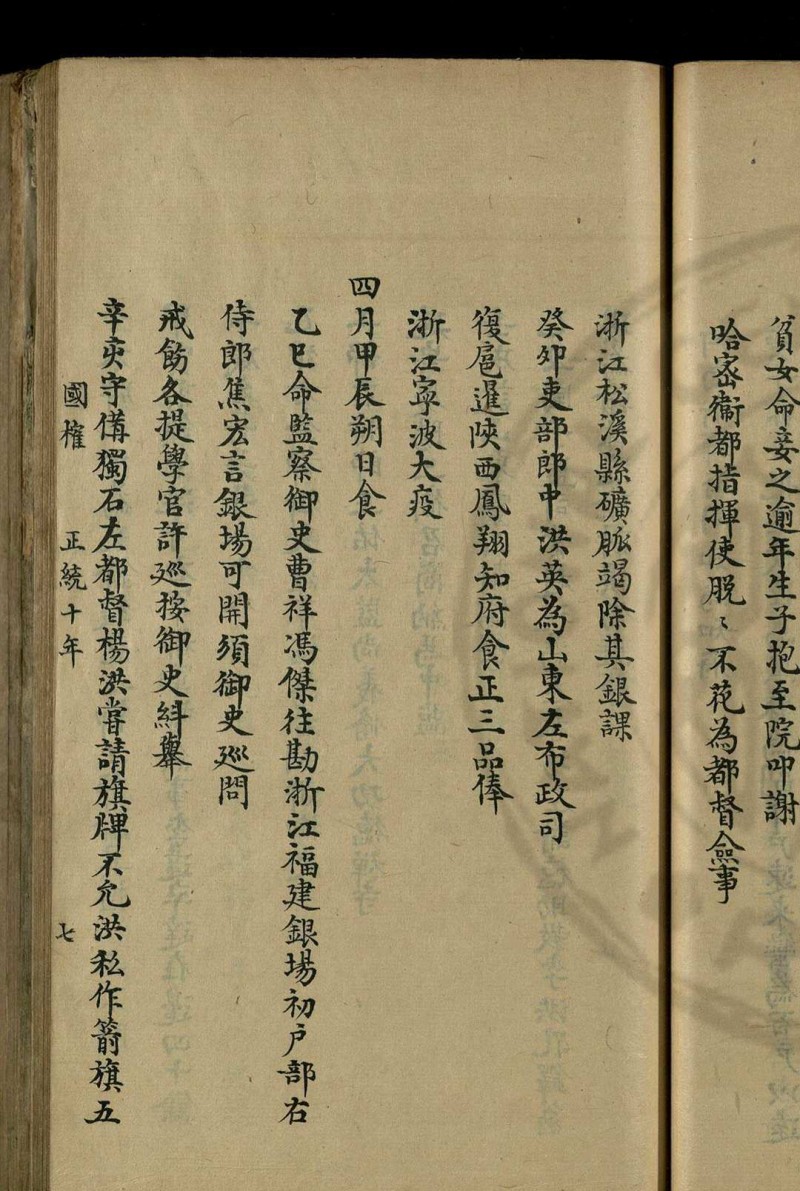 貧女命妾之逾年生子抱至院叩謝
哈密衞都指揮使脫〻不花為都督僉事
浙江松溪縣礦脈竭除其銀課
癸夘吏部郎中洪英為山東左布政司
復扈暹陝西鳳翔知府食正三品俸
浙江寧波大疫
四月甲辰朔日食
乙巳命監察御史曹祥馮傑往勘浙江福建銀場初户部右
侍郎焦宏言銀場可開須御史廵問
戒飭各提學官許廵按御史糾舉
辛亥守備獨石左都督楊洪嘗請旗牌不允洪私作箭旗五
國榷 正統十年 七